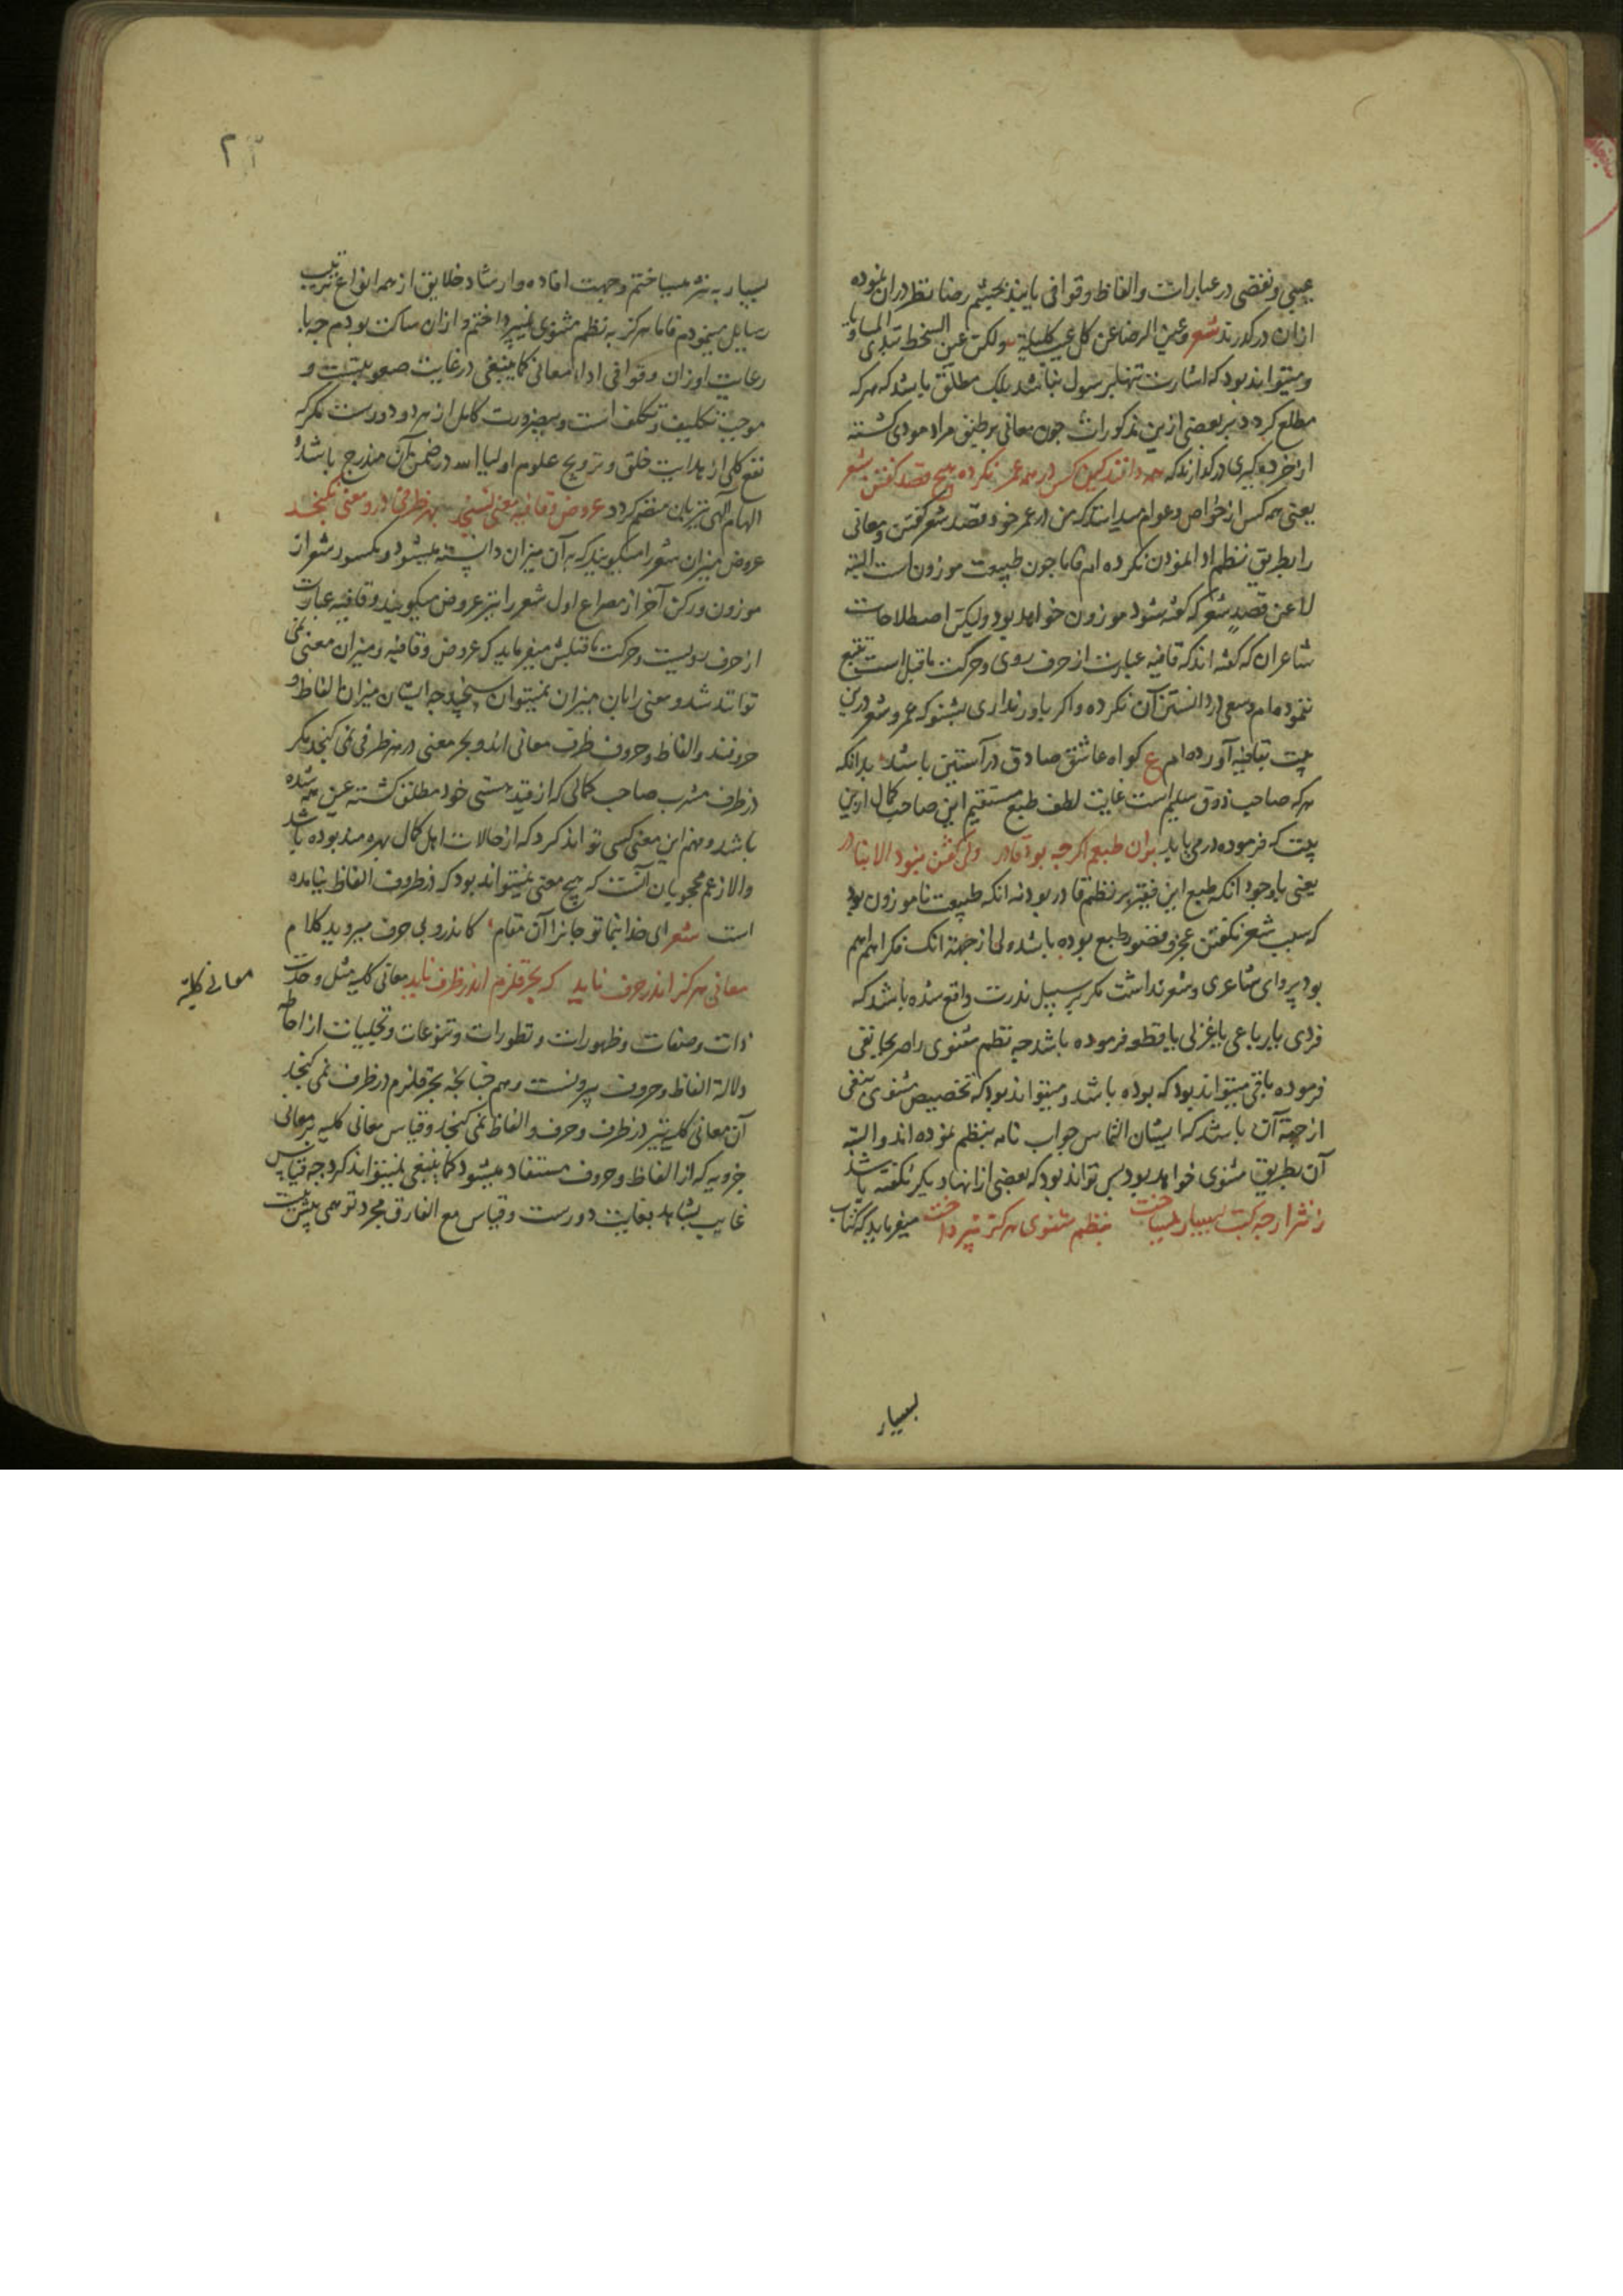 عیبی و نقصی در عبارات و الفاظ و قوافی یابند بچشم رضا نظر دران نموده
ازان درگذرند شعر وعین الرضا عن کل عیب کلیلة ولکن عین السخط تبدی المساویا
و میتواند بود که اشارت تنها بر رسول نباشد بلک مطلق باشد که هر که
مطلع گردد بر بعضی ازین مذکورات چون معانی بر طبق مراد مودی گشته
از خرده گیری درگذارند که همه دانند کین کس در همه عمر نکرده هیچ قصد گفتن شعر
یعنی همه کس از خواص و عوام میدانند که من در عمر خود قصد شعر گفتن و معانی
را بطریق نظم ادا نمودن نکرده ام فاما چون طبیعت موزون است البته
لا عن قصدٍ شعر که گفته شود موزون خواهد بود ولیکن اصطلاحات
شاعران که گفته اند که قافیه عبارت از حرف روی و حرکت ماقبل است تتبع
ننموده ام و سعی در دانستن آن نکرده و اگر باور نداری بشنو که عمر و شعر درین
بیت بقافیه آورده ام ع گواه عاشق صادق در آستین باشد بدانکه
هر که صاحب ذوق سلیم است غایت لطف طبع مستقیم این صاحب کمال ازین
بیت که فرموده در می یابد بران طبعم اگرچه بود قادر ولی گفتن نبود الا بنادر
یعنی باوجود انکه طبع این فقیر بر نظم قادر بود نه انکه طبیعت ناموزون بود
که سبب شعر نگفتن عجز و قصور طبع بوده باشد ولی از جهة انک فکر اهم اهم
بود پروای شاعری و شعر نداشت مگر بر سبیل ندرت واقع شده باشد که
فردی یا رباعی یا غزلی یا قطعه فرموده باشد چه نظم مثنوی را صریحا نفی
فرموده باقی میتواند بود که بوده باشد و میتواند بود که تخصیص مثنوی بنفی
از جهة آن باشد که ایشان التماس جواب نامه بنظم نموده اند و البته
آن بطریق مثنوی خواهد بود پس تواند بود که بعضی از اینها دیگر نگفته باشد
ز نثر ارچه کتب بسیار میساخت بنظم مثنوی هرگز نپرداخت میفرماید که کتاب
بسیار
بسیار به نثر میساختم و جهت افاده و ارشاد خلایق از همه انواع ترتیب
رسایل مینمودم فاما هرگز به نظم مثنوی نمیپرداختم و ازان ساکت بودم چه با
رعایت اوزان و قوافی اداء معانی کما ینبغی در غایت صعوبتست و
موجب تکلیف و تکلف است و بیضرورت کامل ازهر دو دورست مگر که
نفع کلی از هدایت خلق و ترویج علوم اولیا الله در ضمن آن مندرج باشد
الهام آلهی نیز بان منضم گردد عروض و قافیه معنی نسنجد بهر ظرفی درو معنی نگنجد
عروض میزان شعر را میگویند که به آن میزان دانسته میشود مکسور شعر از
موزون و رکن آخر از مصراع اول شعر را نیز عروض میگویند و قافیه عبارت
از حرف رویست و حرکت ماقبلش میفرماید که عروض و قافیه و میزان معنی نمی
توانند شد و معنی را بان میزان نمیتوان سنجید چه ایشان میزان الفاظ و
حروفند و الفاظ و حروف ظرف معانی اند و بحر معنی در هر ظرفی نمی گنجد مگر
در ظرف مشرب صاحب کمالی که از قید هستی خود مطلق گشته عین همه شده
باشد و فهم این معنی کسی تواند کرد که از حالات اهل کمال بهره مند بوده باشد
والا زعم محجوبان آنست که هیچ معنی نمیتواند بود که در ظروف الفاظ نیامده
است شعر ای خدا بنما تو جانرا آن مقام کاندرو بی حرف میروید کلام
معانی هرگز اندر حرف ناید که بحر قلزم اندر ظرف ناید معانی کلیه مثل وحدت
معانی کلیه
ذات و صفات و ظهورات و تطورات و تنوعات و تجلیات از احاطه
دلالة الفاظ و حروف بیرونست و هم چنانچه بحر قلزم در ظرف نمی گنجد
آن معانی کلیه نیز در ظرف و حرف و الفاظ نمی گنجد و قیاس معانی کلیه بر معانی
جزویه که از الفاظ و حروف مستفاد میشود کما ینبغی نمیتواند کرد چه قیاس
غایب بشاهد بغایت دورست و قیاس مع الفارق مجرد توهمی بیش نیست